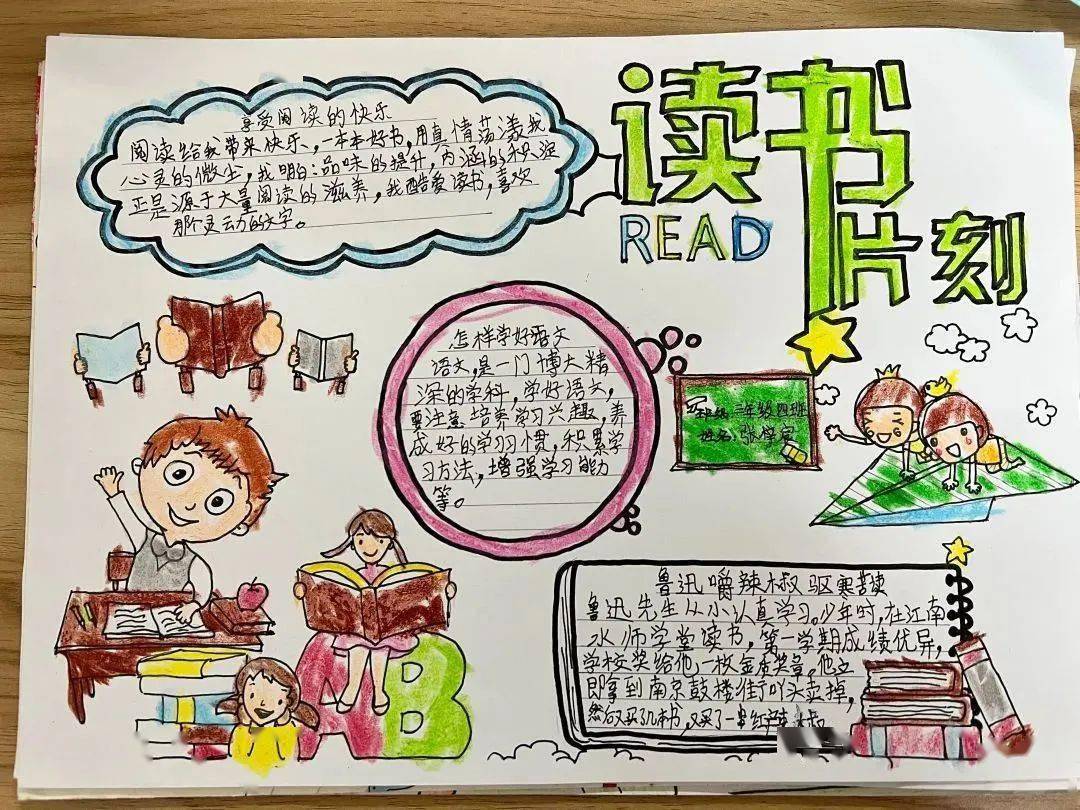 享受阅读的快乐
阅读给我带来快乐,一本本好书,用真情荡漾我
心灵的微尘,我明白:品味的提升,内涵的积淀
正是源于大量阅读的滋养,我酷爱读书,喜欢
那个灵动的文字。
读书
READ
片刻
怎样学好语文
语文,是一门博大精
深的学科,学好语文,
要注意培养学习兴趣,养
成好的学习习惯,积累学
习方法,增强学习能力
等。
班级:三年级四班
姓名:张
鲁迅嚼辣椒驱寒苦读
鲁迅先生从小认真学习。少年时,在江南
水师学堂读书,第一学期成绩优异,
学校奖给他一枚金质奖章,他立
即拿到南京鼓楼街头卖掉,
然后又买了几本书,又买了一串红辣椒
AB